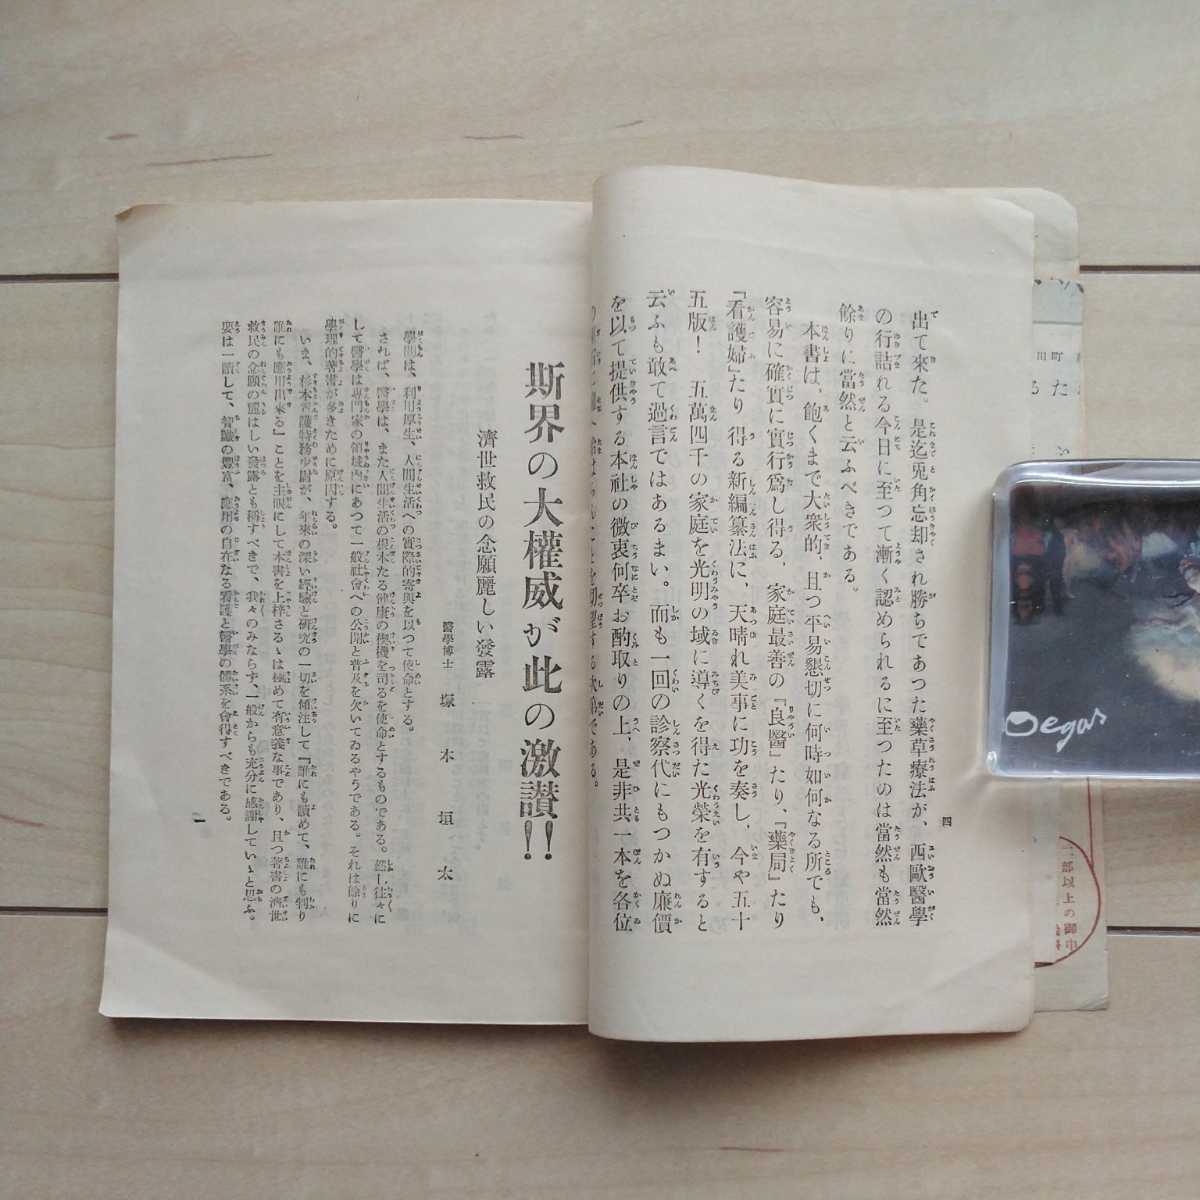 出て來た。是迄兎角忘却され勝ちであつた藥草療法が、西歐醫學
の行詰れる今日に至つて漸く認められるに至つたのは當然も當然
餘りに當然と云ふべきである。
本書は、飽くまで大衆的、且つ平易懇切に何時如何なる所でも、
容易に確實に實行爲し得る、家庭最善の『良醫』たり、『藥局』たり
『看護婦』たり得る新編纂法に、天晴れ美事に功を奏し、今や五十
五版！　五萬四千の家庭を光明の域に導くを得た光榮を有すると
云ふも敢て過言ではあるまい。而も一回の診察代にもつかぬ廉價
を以て提供する本社の微衷何卒お酌取りの上、是非共一本を各位
四
斯界の大權威が此の激讃!!
濟世救民の念願麗しい發露
醫學博士　塚本垣太
學問は、利用厚生、人間生活への實際的寄與を以つて使命とする。
されば、醫學は、また人間生活の根本たる健康の樞機を司るを使命とするものである。然し往々に
して醫學は專門家の領域内にあつて一般社會への公開と普及を欠いてゐるやうである。それは餘りに
學理的著書が多きために原因する。
いま、杉本看護特務少尉が、年來の深い經驗と研究の一切を傾注して『誰にも讀めて、誰にも判り
誰にも應用出來る』ことを主眼にして本書を上梓さるゝは極めて有意義な事であり、且つ著書の濟世
救民の念願の麗はしい發露とも稱すべきで、我々のみならず、一般からも充分に感謝していゝと思ふ。
要は一讀して、智識の豐富、應用の自在なる看護と醫學の體系を會得すべきである。
一
Degas
二部以上の御申